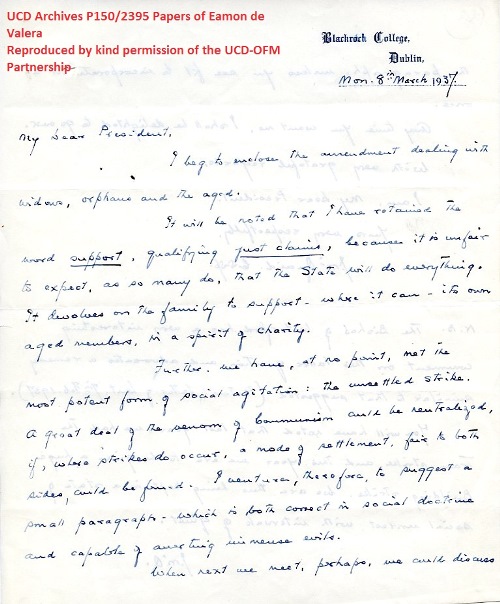 UCD Archives P150/2395 Papers of Eamon de
Valera
Reproduced by kind permission of the UCD-OFM
Partnership
Blackrock College,
Dublin,
Mon. 8th March 1937.
My dear President,
I beg to enclose the amendment dealing with
widows, orphans and the aged.
It will be noted that I have retained the
word support, qualifying just claims, because it is unfair
to expect, as so many do, that the State will do everything.
It devolves on the family to support - where it can - its own
aged members, in a spirit of charity.
Further, we have, at no point, met the
most potent form of social agitation: the unsettled strike.
A great deal of the venom of Communism could be neutralized,
if, where strikes do occur, a mode of settlement, fair to both
sides, could be found. I venture, therefore, to suggest a
small paragraph - which is both correct in social doctrine
and capable of averting immense evils.
When next we meet, perhaps, we could discuss